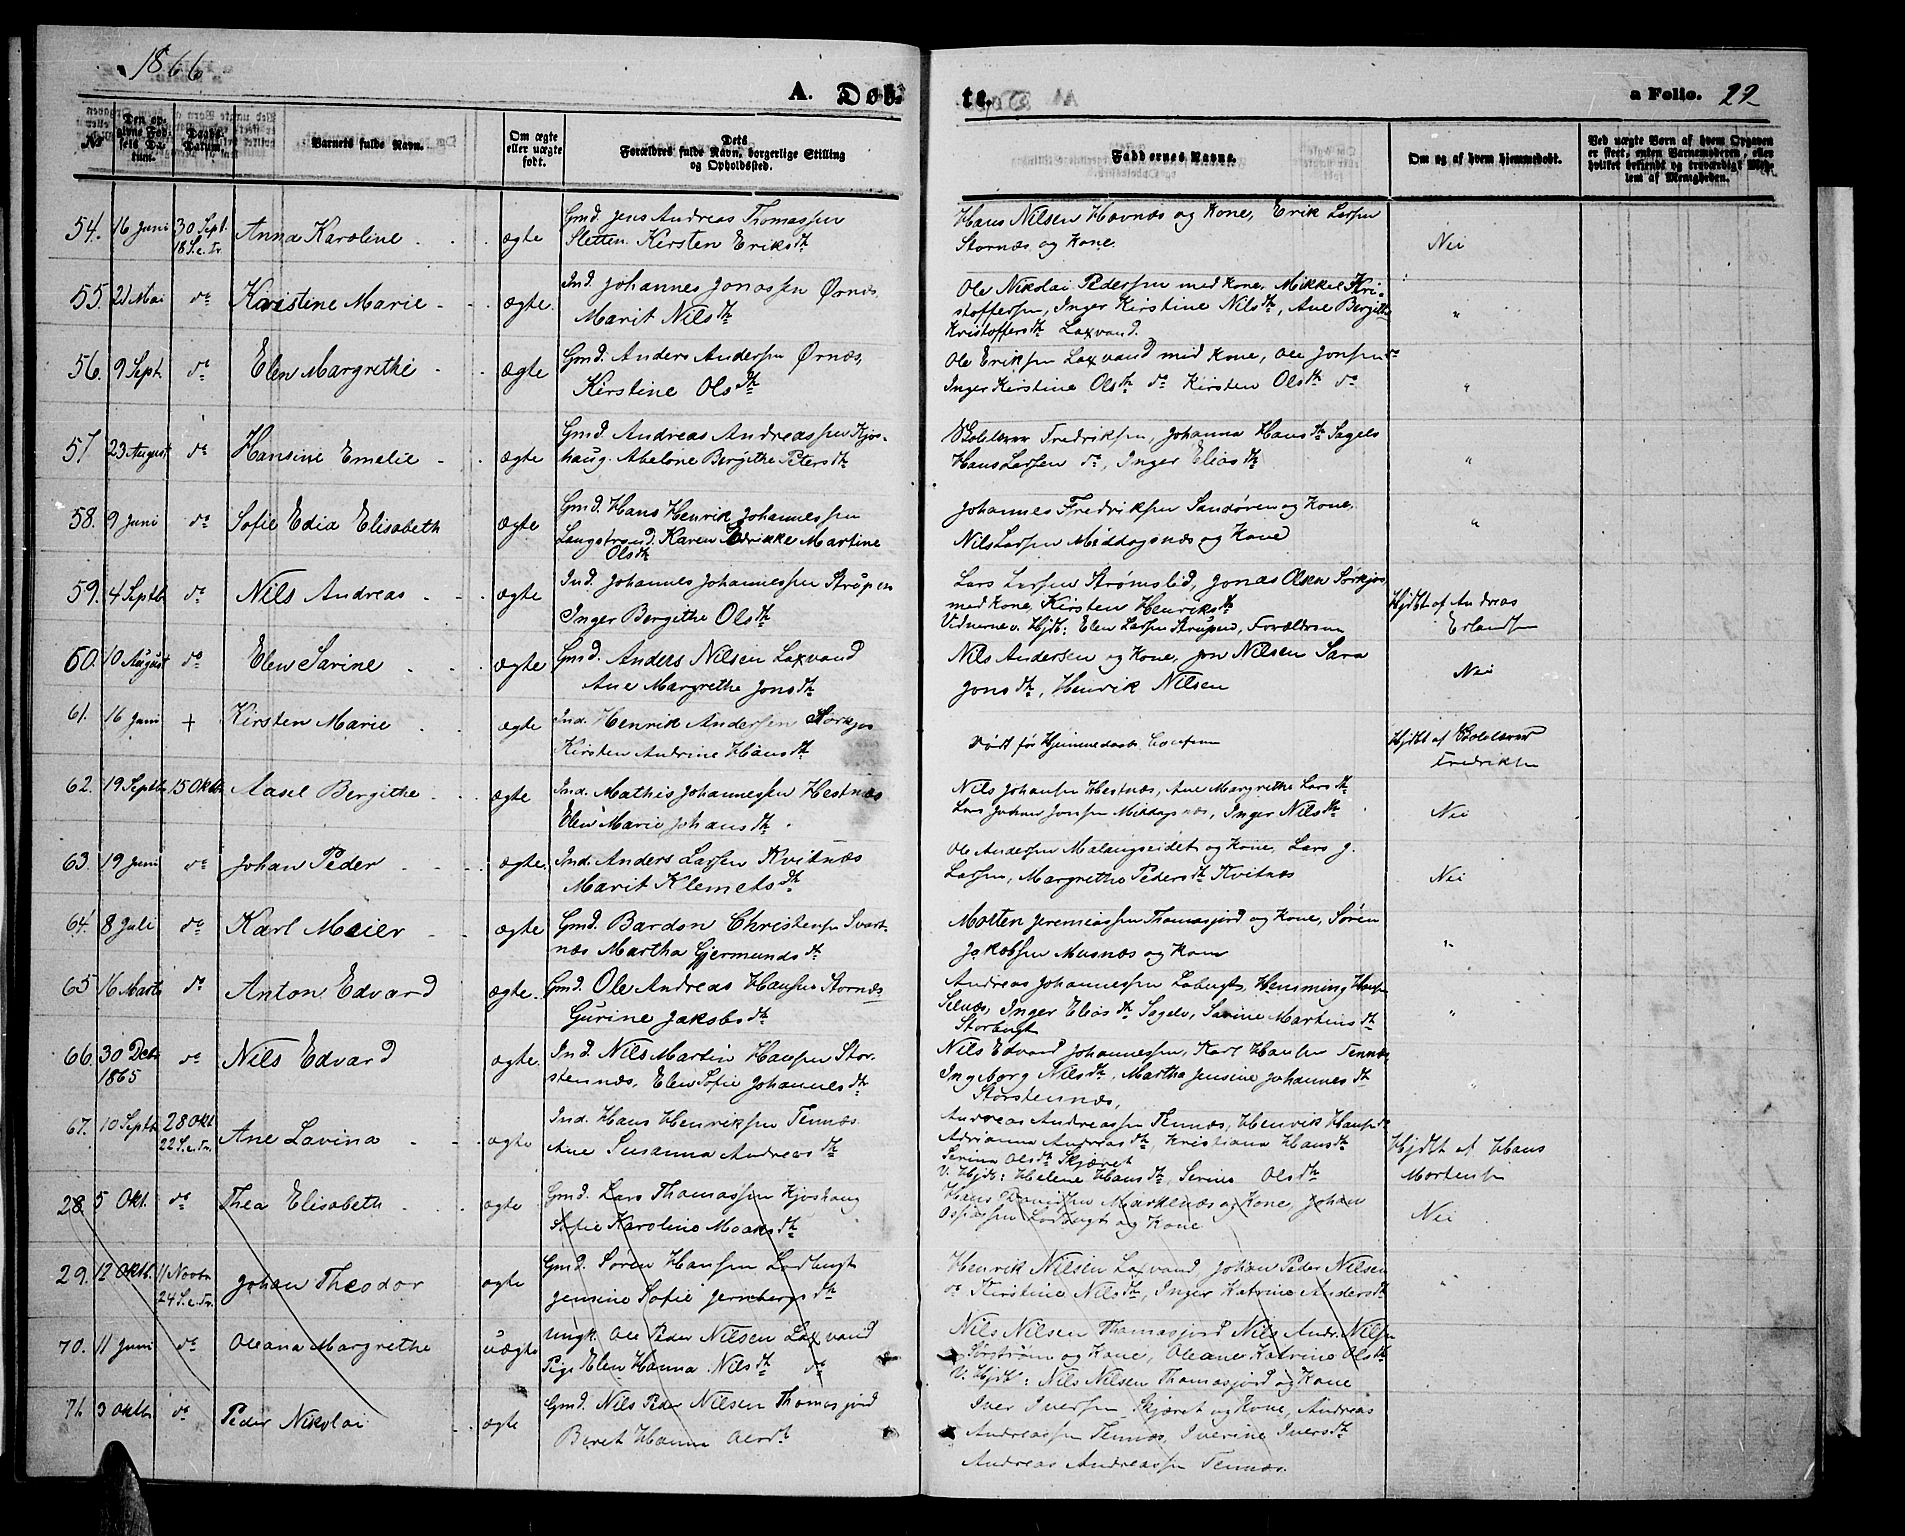 1866
A. Døb-
te.
a Folio. 22
Nr
Den opgivne Fødsels Datum.
Daabs-Datum.
Barnets fulde Navn.
Om ægte eller uægte født.
Dets Forældres fulde Navn, borgerlige Stilling og Opholdssted.
Faddernes Navne.
Om og af hvem hjemmedøbt.
Ved uægte Børn af hvem Opgaven er skeet, enten Barnemoderen, eller hvilket bekjendt og troværdigt Medlem af Menigheden.
54. 16 Juni 30 Sept. 18 S.e.Tr. Anna Karoline ægte Gmd. Jens Andreas Thomassen
Sletten. Kirsten Eriksdtr
Hans Nilsen Havnæs og Kone, Erik Larsen
Stornæs og Kone.
Nei
55. 21 Mai do Kristine Marie ægte. Ind. Johannes Jonassen Ørnæs.
Marit Nilsdtr
Ole Nikolai Pedersen med Kone, Mikkel Kri-
stoffersen, Inger Kirstine Nilsdtr, Ane Bergithe
Kristoffersdtr Laxvand.
"
56. 9 Sept. do Elen Margrethe ægte Gmd. Anders Andersen Ørnæs,
Kirstine Olsdtr
Ole Eriksen Laxvand med Kone, Ole Jonsen do
Inger Kirstine Olsdtr do Kirsten Olsdtr do
"
57 23 August do Hansine Emelie ægte Gmd. Andreas Andreassen Kjos-
haug. Abelone Bergithe Petersdtr
Skolelærer Fredriksen, Johanna Hansdtr Sagelv
Hans Larsen do, Inger Eliasdtr
"
58. 9 Juni do Sofie Edia Elisabeth ægte Gmd. Hans Henrik Johannessen
Langstrand. Karen Edrikke Martine
Olsdtr
Johannes Fredriksen Sandøren og Kone,
Nils Larsen Middagsnæs og Kone
"
59. 4 Septb do Nils Andreas ægte Ind. Johannes Johannessen Strupen
Inger Bergithe Olsdtr
Lars Larsen Strømslid, Jonas Olsen Sørkjos
med Kone, Kirsten Henriksdtr
Vidnerne v. Hjdb: Elen Larsen Strupen, Forældrene
Hjdbt af Andreas
Erlandsen
60. 10 August do Elen Sarine ægte Gmd. Anders Nilsen Laxvand
Ane Margrethe Jonsdtr
Nils Andersen og Kone, Jon Nilsen Sara
Jonsdtr, Henrik Nilsen
Nei
61. 16 Juni + Kirsten Marie ægte Ind. Henrik Andersen Sørkjos
Kirsten Andrine Hansdtr
Hjdbt af Skolelærer
Fredriksen
62. 19 Septb 15 Oktb Aasel Bergithe ægte Ind. Mathis Johannessen Hestnæs
Elen Marie Johansdtr
Nils Johansen Hestnæs, Ane Margrethe Larsdtr
Lars Johan Jonsen Middagsnæs, Inger Nilsdtr
Nei
63. 19 Juni do Johan Peder ægte. Ind. Anders Larsen Kvitnæs
Marit Klemetsdtr
Ole Andersen Malangseidet og Kone, Lars J.
Larsen, Margrethe Pedersdtr Kvitnæs
Nei
64. 8 Juli do Karl Meier ægte Gmd. Bardon Christensen Svart-
næs Martha Gjermundsdtr
Morten Jeremiassen Thomasjord og Kone, Søren
Jakobsen Musnæs og Kone
"
65 16 Marts do Anton Edvard ægte. Gmd. Ole Andreas Hansen Stornæs
Gurine Jakobsdtr
Andreas Johannessen Løbugt, Hemming Hansen
Selnæs, Inger Eliasdtr Sagelv, Sarine Martinsdtr
Storbugt
"
66. 30 Decb 1865 do Nils Edvard ægte. Ind. Nils Martin Hansen Stor-
stennæs, Elen Sofie Johannesdtr
Nils Edvard Johannessen, Karl Hansen Tennæs
Ingeborg Nilsdtr, Martha Jensine Johannesdtr
Storstennæs,
67. 10 Septb 28 Okt 22 S.e.Tr. Ane Lavina ægte Ind. Hans Henriksen Tennæs
Ane Susanna Andreasdtr
Andreas Andreassen Tennæs, Henrik Hansen do
Adrianna Andreasdtr, Kristiana Hansdtr
Serina Olsdtr Skjæret
V. Hjdb: Helene Hansdtr, Serine Olsdtr
Hjdbt af Hans
Mortensen
28. 5 Okt. do Thea Elisabeth ægte Gmd. Lars Thomassen Kjoshaug
Sofie Karoline Moaksdtr
Marknæs og Kone Johan
og Kone
Nei
29. 12 Oktb. 11 Novbr 24 S.e.Tr. Johan Theodor ægte Gmd. Søren Hansen Lødbugt
Jensine Sofie Jernbergsdtr
Henrik Nilsen Laxvand Johan Peder Nilsen
do Kirstine Nilsdtr, Inger Katrine Andersdtr
"
70. 11 Juni do Oleana Margrethe uægte Ungk. Ole Peder Nilsen Laxvand
Pige Elen Hanna Nilsdtr do
Nils Nilsen Thomasjord Nils Andr. Nilsen
Sørstrøm og Kone, Oleane Katrine Olsdtr
V. Hjdb: Nils Nilsen Thomasjord og Kone
71. 3 Oktbr do Peder Nikolai ægte Gmd. Nils Peder Nilsen Thomasjord
Beret Hanna Olesdtr
Iver Iversen Skjæret og Kone, Andreas
Andreassen Tennæs, Iverine Iversdtr
Andreas Andreassen Tennæs.